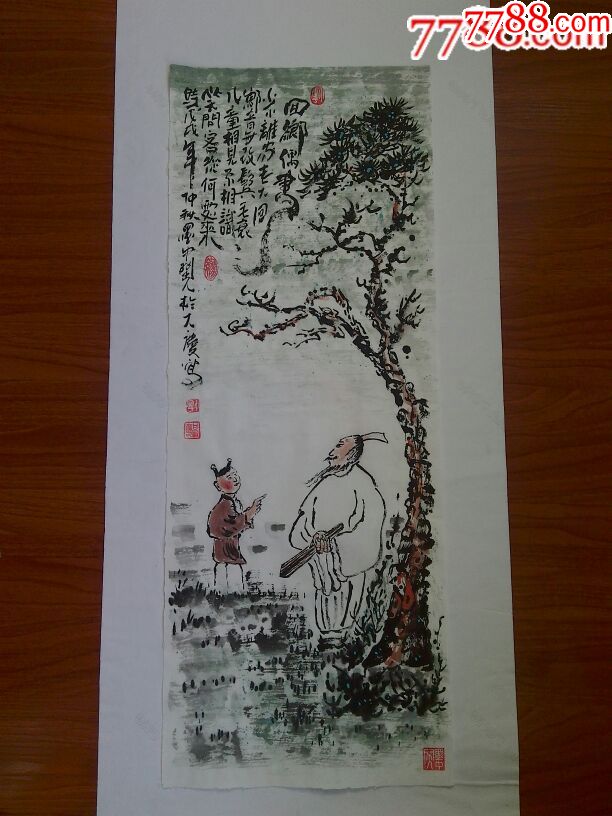 7788.com
7788.com
回鄉偶書
少小離家老大回
鄉音无改鬢毛衰
儿童相見不相識
笑問客從何處來
戊戌年仲秋墨中閑人於大慶寫